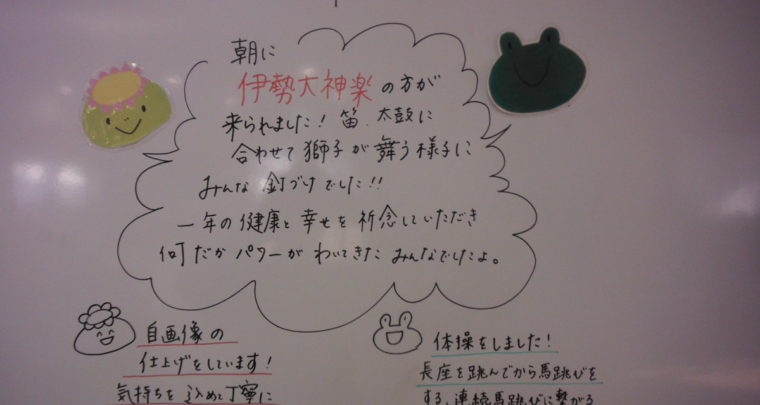 朝に
伊勢大神楽の方が
来られました！笛、太鼓に
合わせて獅子が舞う様子に
みんな釘づけでした!!
一年の健康と幸せを祈念していただき
何だかパワーがわいてきたみんなでしたよ。
自画像の
仕上げをしています！
気持ちを込めて丁寧に
体操をしました！
長座を跳んでから馬跳びを
する、連続馬跳びに繋がる